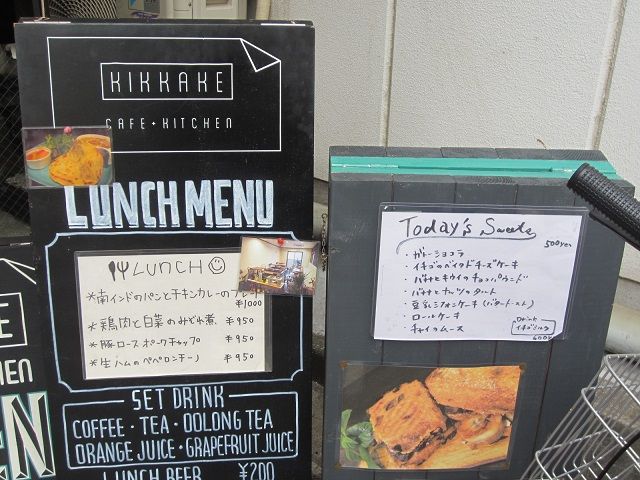 KIKKAKE
CAFE + KITCHEN
LUNCH MENU
LUNCH
*南インドのパンとチキンカレーのプレート
¥1000
*鶏肉と白菜のみぞれ煮 ¥950
*豚ロースポークチャップ ¥950
*生ハムのペペロンチーノ ¥950
SET DRINK
COFFEE・TEA・OOLONG TEA
ORANGE JUICE・GRAPEFRUIT JUICE
LUNCH BEER ¥200
Today's Sweets
500yen
・ガトーショコラ
・イチゴのベイクドチーズケーキ
・バナナとキウイのチョコパウンド
・バナナとナッツのタルト
・豆乳シフォンケーキ
・ロールケーキ
・チャイのムース
Drink
イチゴミルク
600yen
KE
HEN
EN